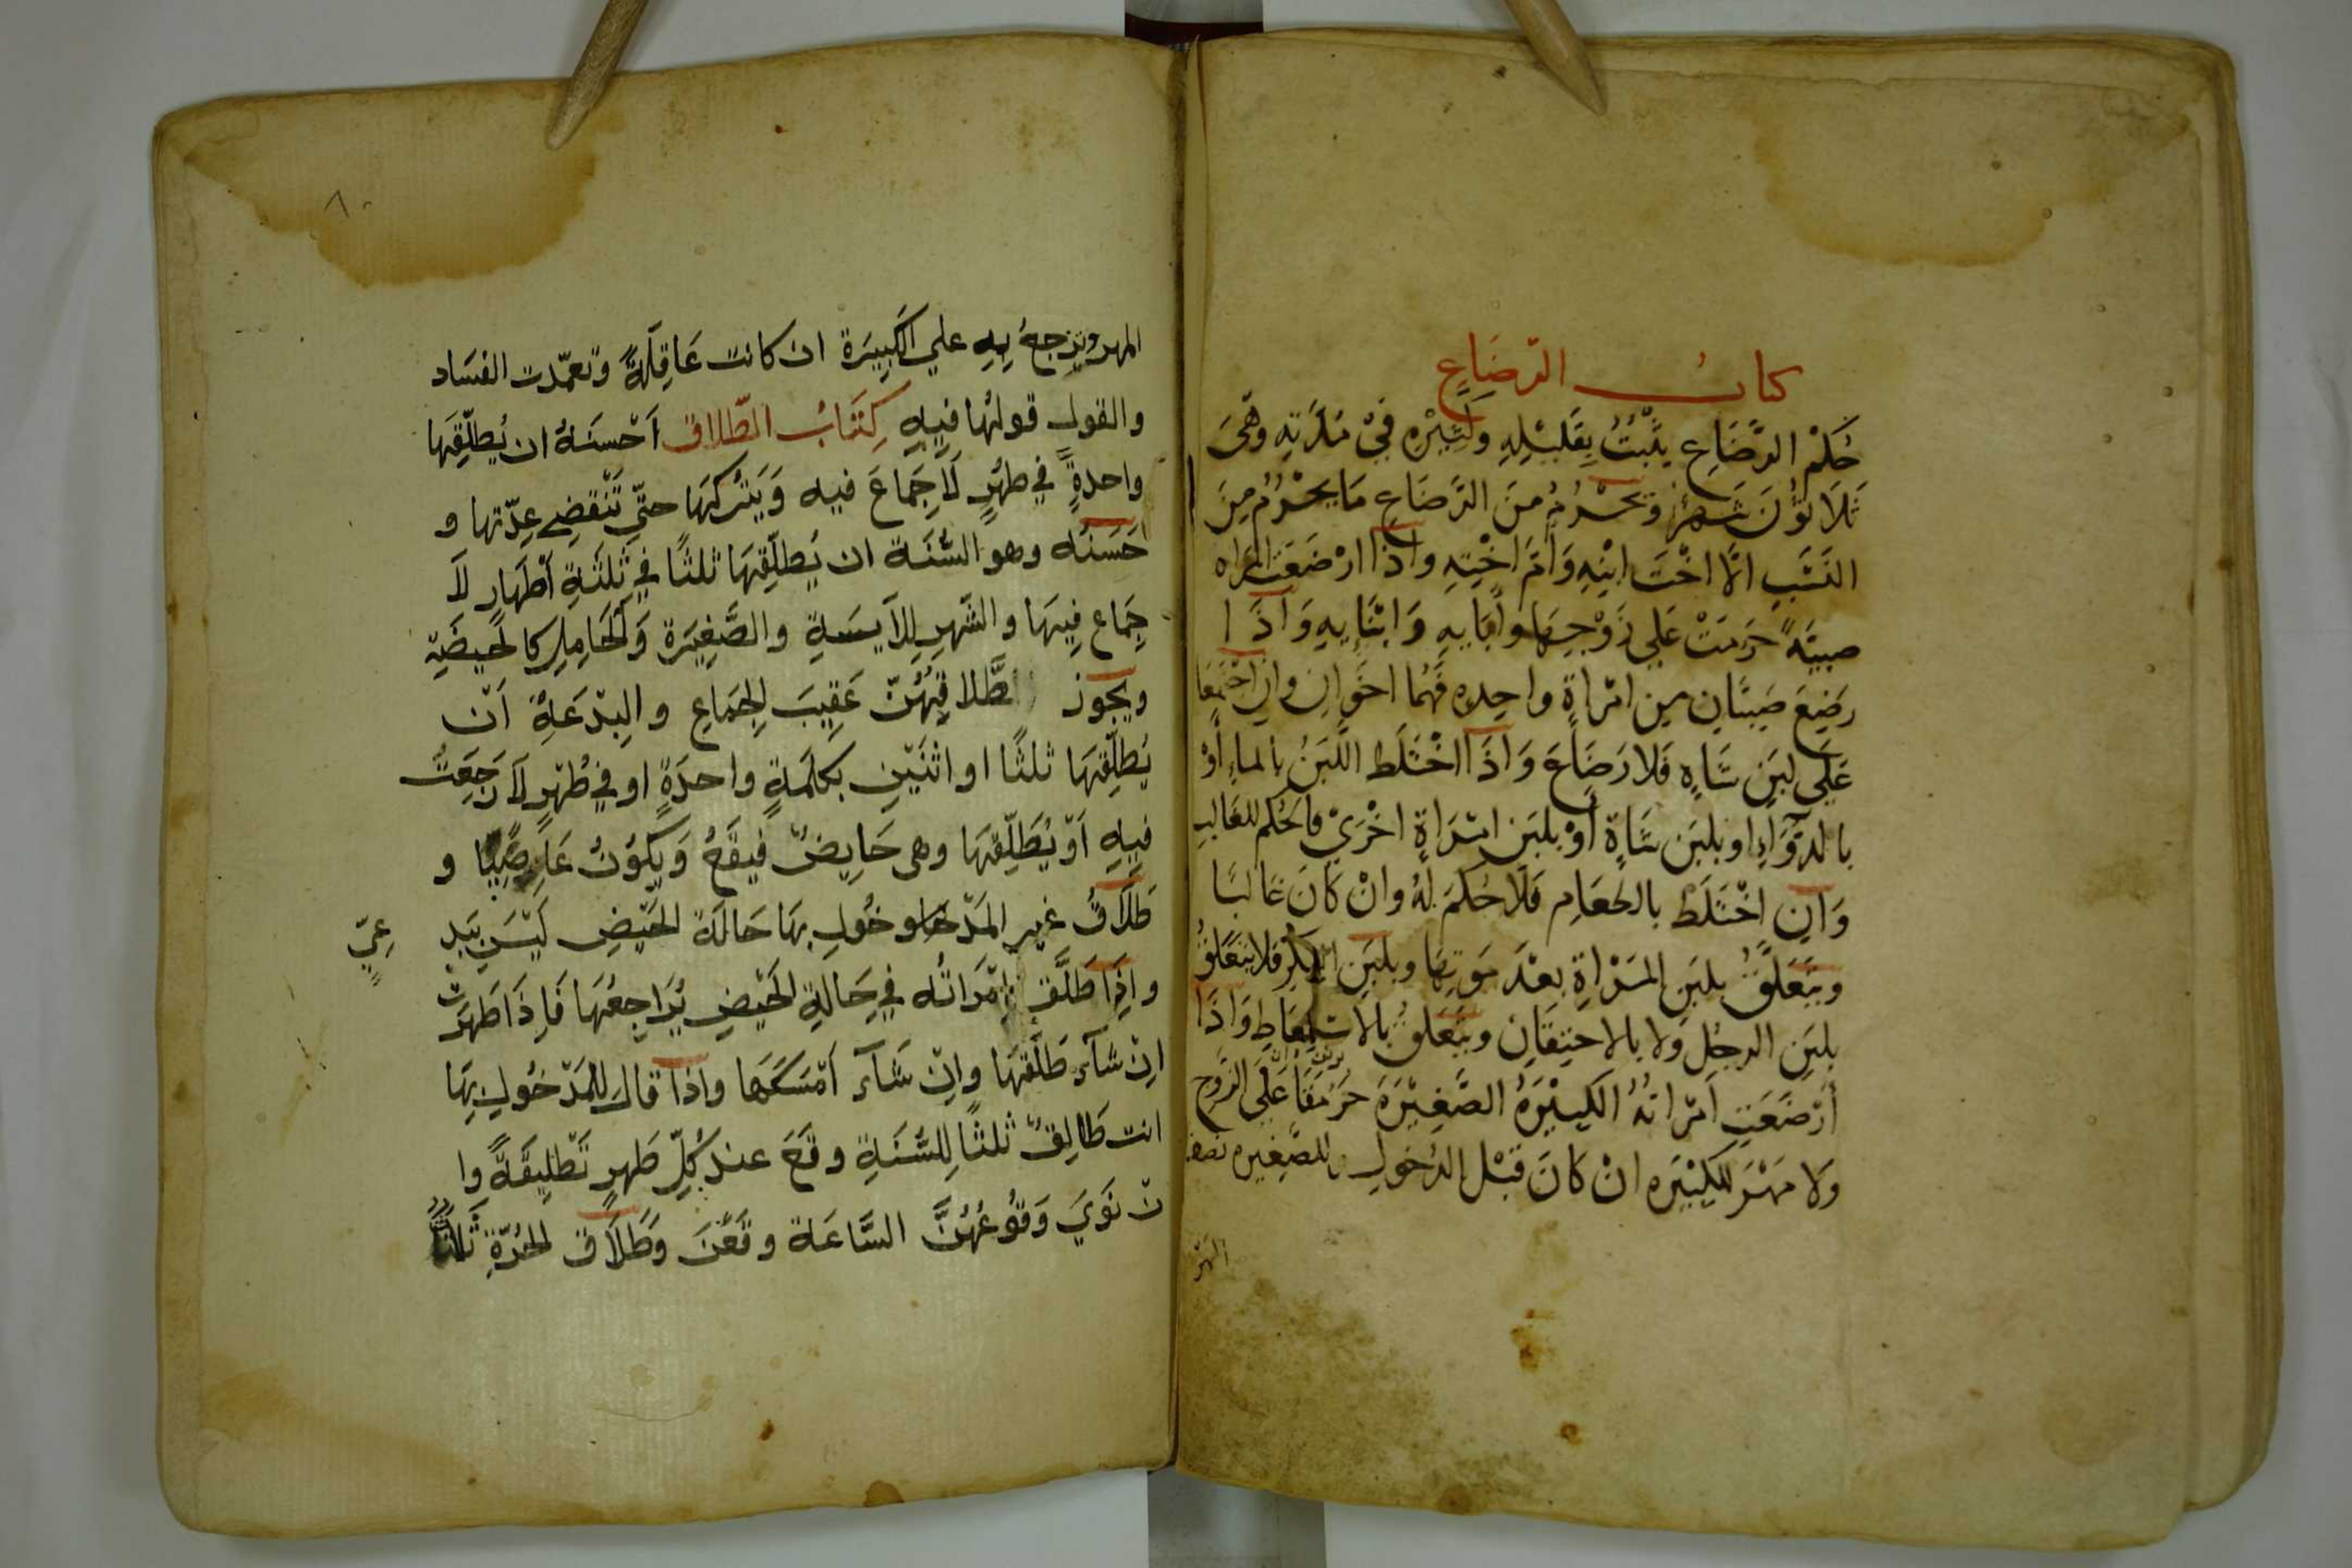 كتاب الرّضَاعِ
حُكمْ الرَّضَاعِ يثْبُتُ بِقَلِيْلِهِ وَكَثِيْرْهِ فيْ مُدّتِهِ وَهْيَ
ثَلَاثوُنَ شَهْرً وَيحْرُمُ منَ الرَّضَاعِ مَا يحْرُمُ مِنَ
النَسَبِ الّا اخْتَ ابْنِهِ وَأمّ اخْتِهِ واذا ارْضَعَتْ المراه
صبيَّةً حَرُمَتْ عَلي زَوْجِهَا وآبَايهِ وَابْنَايِهِ وَاذَا
رَضِعَ صَبيَّانِ من امْراةٍ واحِده فَهُما اخَوانِ وان اجْتَمَعَا
عَلَى لَبَنِ شَاهٍ فَلا رَضَاعَ وَاذَا اخْتَلَط اللَّبَنُ بالماءِ أوْ
بالدّوَاءِ او بلبَن شَاةٍ أوْ بلبَن امْرَاةٍ اخْرَيْ فالحُكم للغَالب
وَان اخْتَلَطْ بالطعَامِ فَلَا حُكمَ لهُ وانْ كَانَ غالبًا
ويَتَعَلَقُ بلبَنِ المرْاةِ بعْدَ مَوتِهَا وبلبَنِ البكرْ فلا يتَعَلقُ
بلبَنِ الرجُلِ وَلا بالاحتِقَانِ ويتَعَلقُ بالاستِعَاطِ وَاذَا
أرْضَعَتِ امْراتهُ الكَبيْرَهُ الصَّغِيْرَةَ حَرُمَتَا عَلَى الزّوجِ
وَلا مَهْرَ للكبيْرَهِ انْ كَانَ قَبْل الدُخولِ وللصَّغِيره نصف
المَهْر
المهر ويَرجعُ بِهِ علي الكَبِيرَة ان كانت عَاقِلَةً وتعمّدت الفسَاد
والقول قولهُا فِيهِ كِتَابُ الطّلاق اَحْسنَهُ ان يُطلّقِهَا
واحدةً في طهْرٍ لَا جِمَاعَ فيه وَيَتْركهَا حتّي تَنْقضِي عِدّتها و
حَسَنُه وهو السُّنَة ان يُطلّقِهَا ثلثًا في ثلثَةِ أطْهَارٍ لَا
جِمَاع فِيهَا والشّهرِ للِآيسَةِ والصَّغِيرَة وَالحَامِلِ كالحَيضَةِ
ويجَوز طَّلاقِهُنّ عَقِيبَ الجِمَاعِ والبِدْعَةُ اَنْ
يُطلّقِهَا ثلثًا او اثنَيْنِ بكلَمَةٍ واحدَةٍ او في طُهْرٍ لَا رَجعَتَ
فِيهِ اَوْ يُطَلّقِهَا وهى حَايِضٌ فَيقَعُ وَيَكوُنُ عَاصِيًا و
طَلَاقُ غير المَدْخَول بهَا حَالَة الحَيْضِ لَيْسَ بَبد عِيّ
واذا طَلّق امْرَاتُه في حَالةِ الحَيْضِ يُرَاجِعُهَا فَاِذَا طَهرَت
انْ شآء طَلّقهَا وانْ شَآءَ اَمْسَكهَا واذا قالَ للمَدْخُولِ بِهَا
انت طَالِقٌ ثلثًا لِلسُّنَةِ وقعَ عند كلِّ طَهرٍ تَطْلِيقَةً وا
نْ نَوَيَ وَقوُعُهُنَّ السَّاعَة وقَعْنَ وَطَلَاقَ الحُرّةِ ثَلاثًا